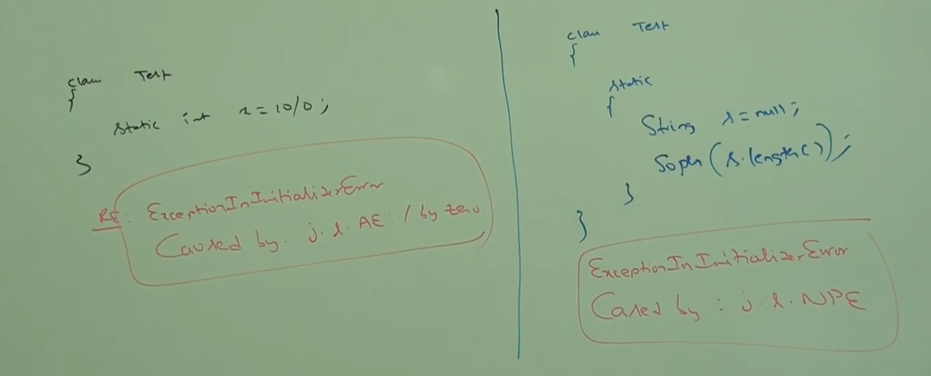 class Test
{
static int x=10/0;
}
RE: ExceptionInInitializerError
Caused by: j.l.AE: / by zero
class Test
{
static
{
String s=null;
Sopln(s.length());
}
}
ExceptionInInitializerError
Caused by: j.l.NPE